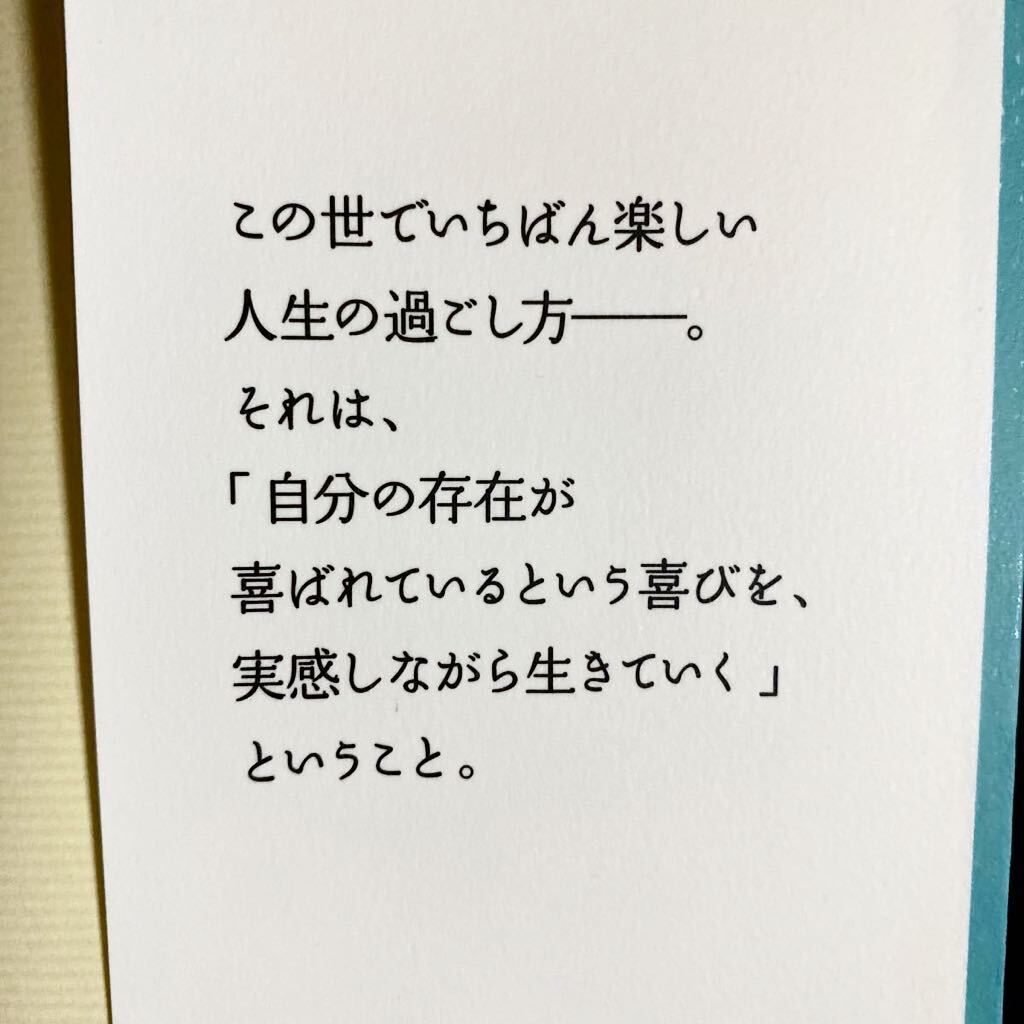 この世でいちばん楽しい
人生の過ごし方――。
それは、
「自分の存在が
喜ばれているという喜びを、
実感しながら生きていく」
ということ。